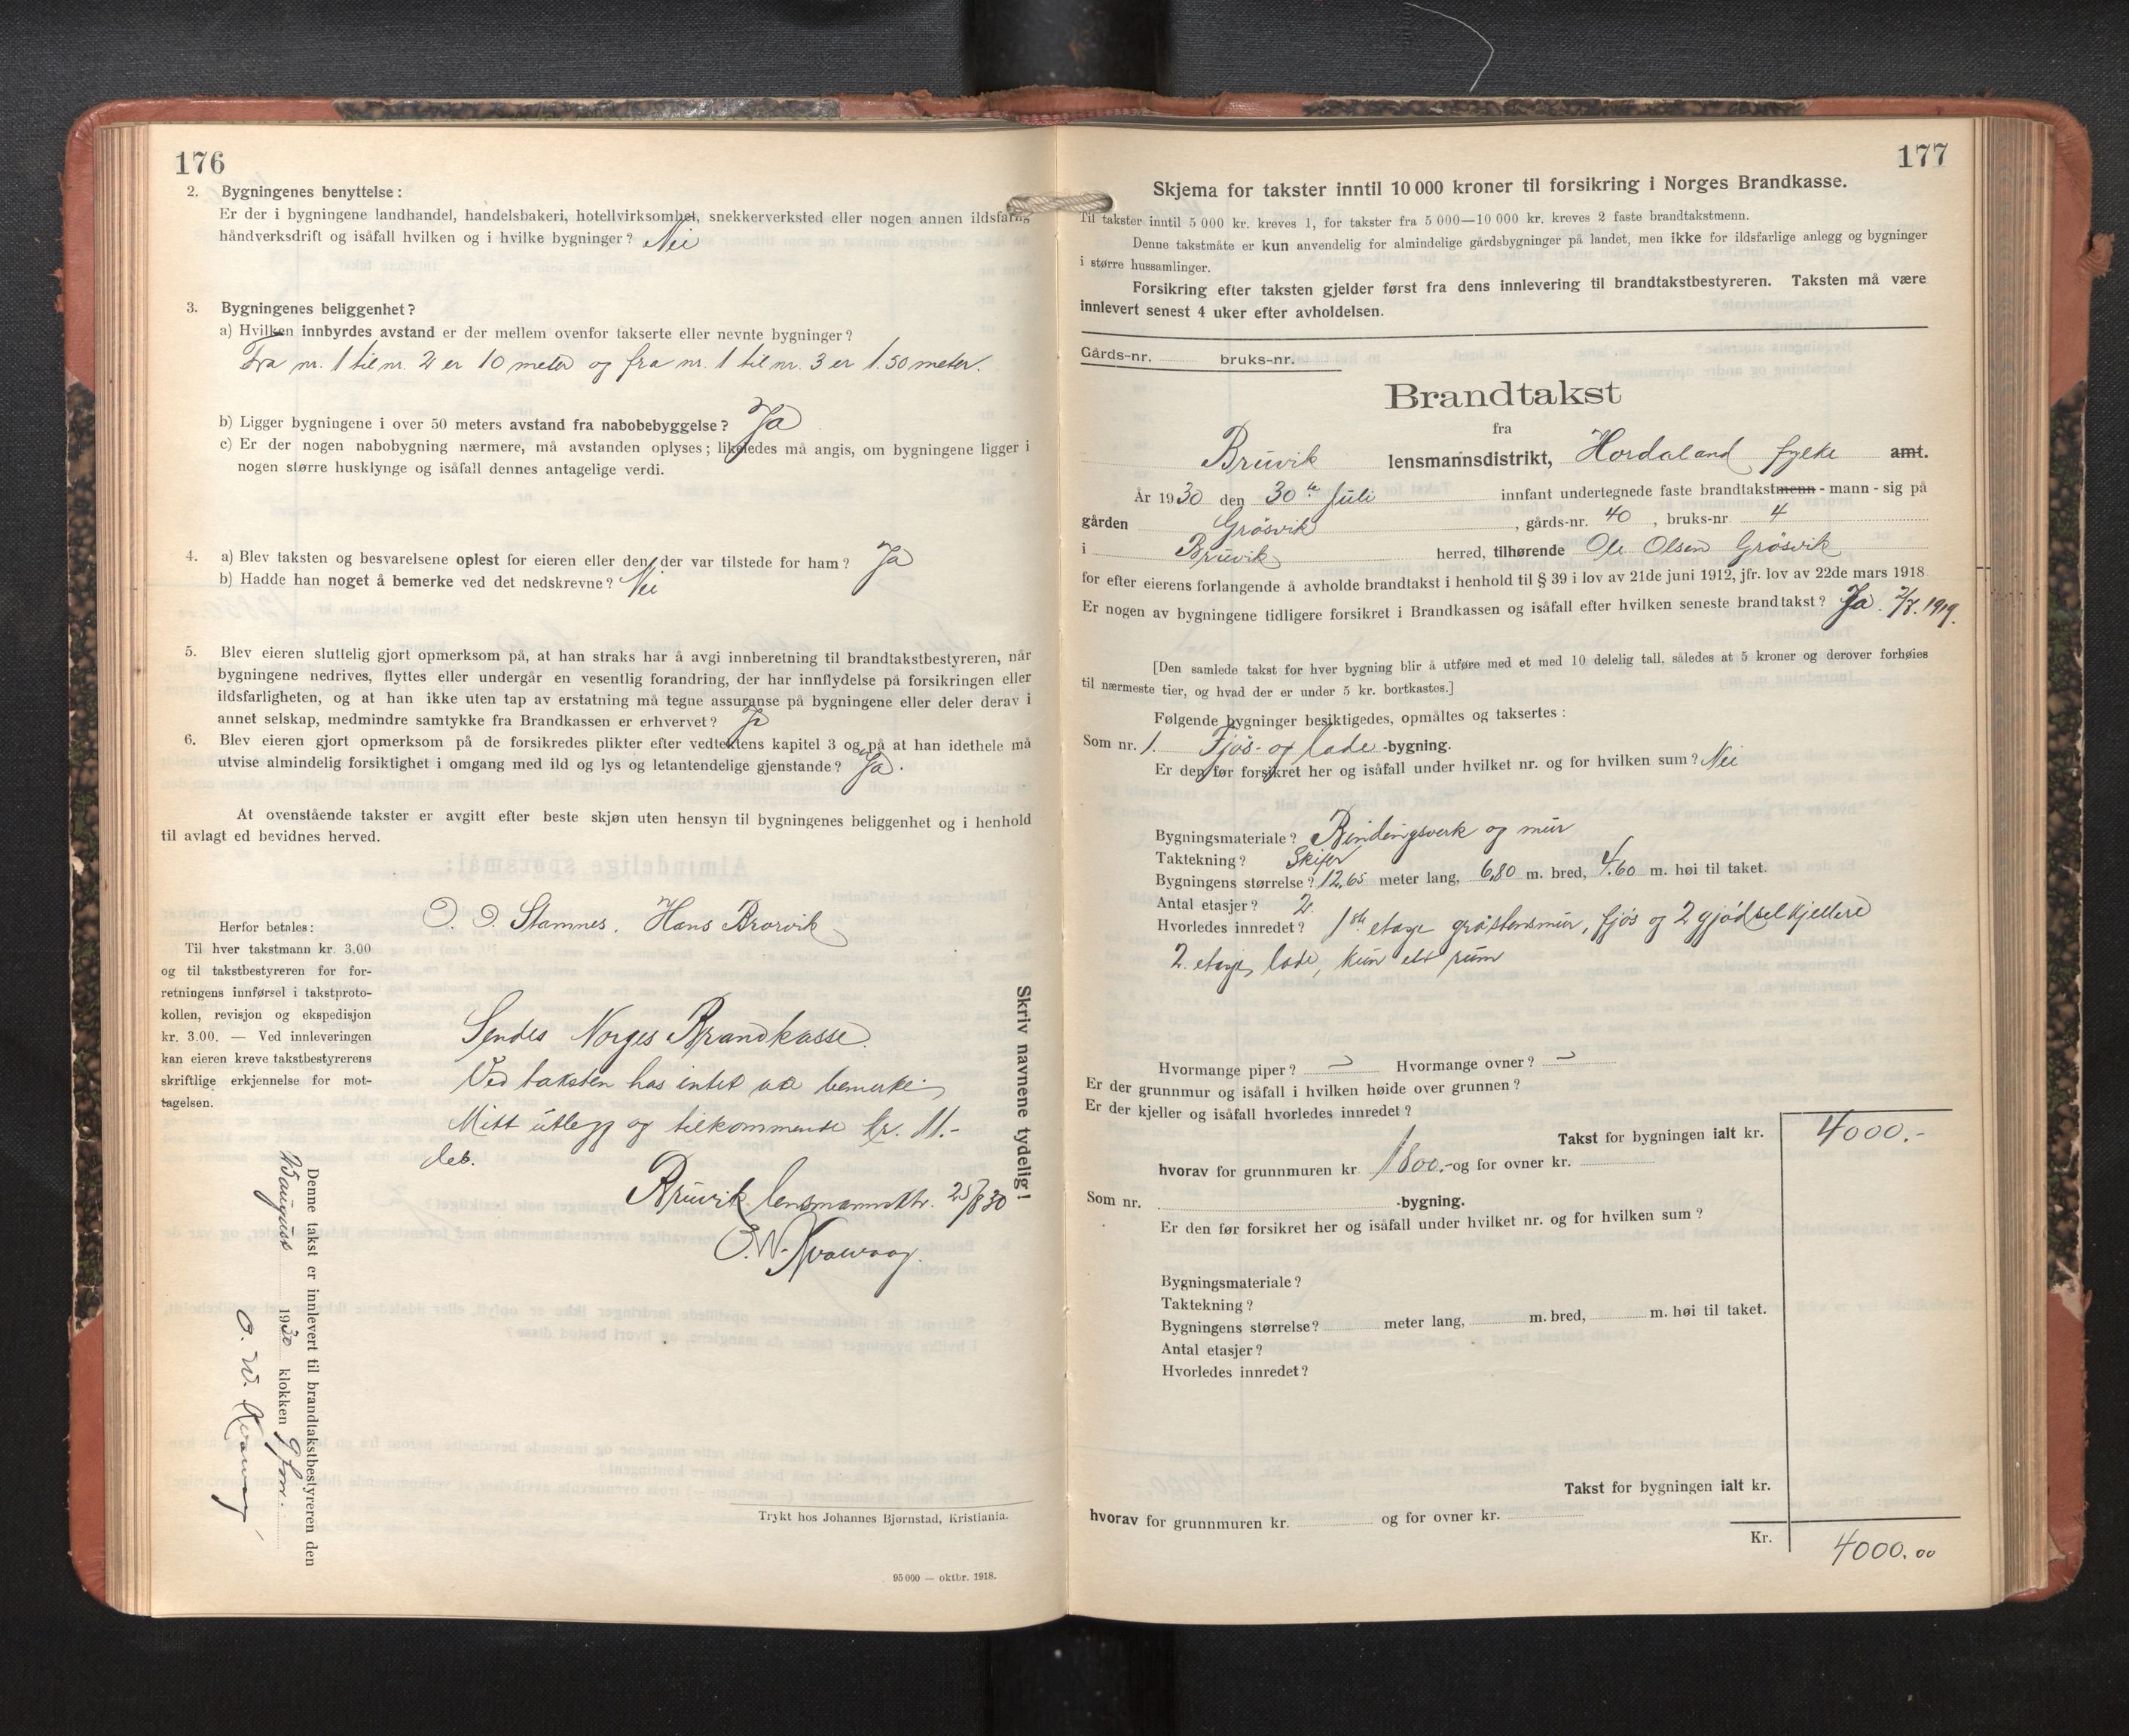 176
2. Bygningenes benyttelse:
Er der i bygningene landhandel, handelsbakeri, hotellvirksomhet, snekkerverksted eller nogen annen ildsfarlig
håndverksdrift og isåfall hvilken og i hvilke bygninger? Nei
3. Bygningenes beliggenhet?
a) Hvilken innbyrdes avstand er der mellem ovenfor takserte eller nevnte bygninger?
Fra nr. 1 til nr. 2 er 10 meter og fra nr. 1 til nr. 3 er 1.50 meter.
b) Ligger bygningene i over 50 meters avstand fra nabobebyggelse? Ja
c) Er der nogen nabobygning nærmere, må avstanden oplyses; likeledes må angis, om bygningene ligger i
nogen større husklynge og isåfall dennes antagelige verdi.
4. a) Blev taksten og besvarelsene oplest for eieren eller den, der var tilstede for ham? Ja
b) Hadde han noget å bemerke ved det nedskrevne? Nei
5. Blev eieren sluttelig gjort opmerksom på, at han straks har å avgi innberetning til brandtakstbestyreren, når
bygningene nedrives, flyttes eller undergår en vesentlig forandring, der har innflydelse på forsikringen eller
ildsfarligheten, og at han ikke uten tap av erstatning må tegne assuranse på bygningene eller deler derav i
annet selskap, medmindre samtykke fra Brandkassen er erhvervet? Ja
6. Blev eieren gjort opmerksom på de forsikredes plikter efter vedtektens kapitel 3 og på at han idethele må
utvise almindelig forsiktighet i omgang med ild og lys og letantendelige gjenstande? Ja.
At ovenstående takster er avgitt efter beste skjøn uten hensyn til bygningenes beliggenhet og i henhold
til avlagt ed bevidnes herved.
O. O. Stamnes. Hans Brorvik
Herfor betales:
Til hver takstmann kr. 3.00
og til takstbestyreren for for-
retningens innførsel i takstproto-
kollen, revisjon og ekspedisjon
kr. 3.00. — Ved innleveringen
kan eieren kreve takstbestyrerens
skriftlige erkjennelse for mot-
tagelsen.
Sendes Norges Brandkasse.
Ved taksten has intet at bemerke.
Mitt utlegg og tilkommende kr. 11.-
Bruvik lensmannsktr. 25/8 30
Skriv navnene tydelig!
Denne takst er innlevert til brandtakstbestyreren den
25 august 1930 klokken 9 form.
Trykt hos Johannes Bjørnstad, Kristiania.
95 000 — oktbr. 1918.
177
Skjema for takster inntil 10 000 kroner til forsikring i Norges Brandkasse.
Til takster inntil 5 000 kr. kreves 1, for takster fra 5 000—10 000 kr. kreves 2 faste brandtakstmenn.
Denne takstmåte er kun anvendelig for almindelige gårdsbygninger på landet, men ikke for ildsfarlige anlegg og bygninger
i større hussamlinger.
Forsikring efter taksten gjelder først fra dens innlevering til brandtakstbestyreren. Taksten må være
innlevert senest 4 uker efter avholdelsen.
Gårds-nr. bruks-nr.
Brandtakst
fra
Bruvik lensmannsdistrikt, Hordaland fylke amt.
År 1930 den 30te Juli innfant undertegnede faste brandtakstmenn - mann - sig på
gården Gråsvik, gårds-nr. 40, bruks-nr. 4
i Bruvik herred, tilhørende Ole Olsen Gråsvik
for efter eierens forlangende å avholde brandtakst i henhold til § 39 i lov av 21de juni 1912, jfr. lov av 22de mars 1918
Er nogen av bygningene tidligere forsikret i Brandkassen og isåfall efter hvilken seneste brandtakst? Ja. 2/8. 1919.
[Den samlede takst for hver bygning blir å utføre med et med 10 delelig tall, således at 5 kroner og derover forhøies
til nærmeste tier, og hvad der er under 5 kr. bortkastes.]
Følgende bygninger besiktigedes, opmåltes og taksertes:
Som nr. 1. Fjøs- og lade -bygning.
Er den før forsikret her og isåfall under hvilket nr. og for hvilken sum? Nei
Bygningsmateriale? Bindingsverk og mur
Taktekning? Skifer
Bygningens størrelse? 12,65 meter lang, 6,80 m. bred, 4,60 m. høi til taket.
Antal etasjer? 2
Hvorledes innredet? 1ste etage gråstensmur, fjøs og 2 gjødselkjellere
2. etage, lade, kun ett rum
Hvormange piper? Hvormange ovner?
Er der grunnmur og isåfall i hvilken høide over grunnen?
Er der kjeller og isåfall hvorledes innredet?
Takst for bygningen ialt kr. 4000.-
hvorav for grunnmuren kr. 1800.- og for ovner kr.
Som nr. -bygning.
Er den før forsikret her og isåfall under hvilket nr. og for hvilken sum?
Bygningsmateriale?
Taktekning?
Bygningens størrelse? meter lang, m. bred, m. høi til taket.
Antal etasjer?
Hvorledes innredet?
Takst for bygningen ialt kr.
hvorav for grunnmuren kr. og for ovner kr.
Kr. 4000.00